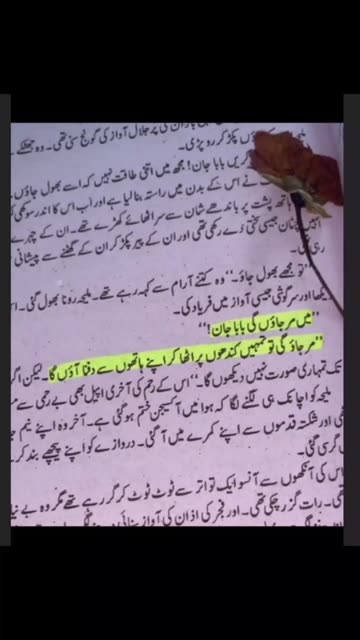 پکڑ کر رو پڑی۔
کریں بابا جان! مجھ میں اتنی طاقت نہیں کہ اسے بھول جاؤں
نے اس کے بدن میں راستہ بنا لیا ہے اور اب اس کا اندر سوکھی
ہاتھ پشت پر باندھے شان سے سر اٹھائے کھڑے تھے۔ ان کے چہرے
چٹان جیسی سختی دے رکھی تھی اور ان کے پیر پکڑ کر ان کے گھٹنے سے پیشانی
رہی تھی۔
"تو مجھے بھول جاؤ۔" وہ کتنے آرام سے کہہ رہے تھے۔ ملیحہ رونا بھول گئی۔
دیکھا اور سرگوشی جیسی آواز میں فریاد کی۔
"میں مر جاؤں گی بابا جان!"
"مر جاؤ گی تو تمہیں کندھوں پر اٹھا کر اپنے ہاتھوں سے دفنا آؤں گا۔ لیکن
تک تمہاری صورت نہیں دیکھوں گا۔" اس کے رحم کی آخری اپیل بھی بے رحمی سے
ملیحہ کو اچانک ہی لگنے لگا کہ ہوا میں آکسیجن ختم ہو گئی ہے۔ آخر وہ اپنے نیم
اور شکستہ قدموں سے اپنے کمرے میں آ گئی۔ دروازے کو اپنے پیچھے بند
گر سی گئی۔
اس کی آنکھوں سے آنسو ایک تواتر سے ٹوٹ ٹوٹ کر گر رہے تھے مگر وہ بے
تھی۔ رات گزر چکی تھی۔ اور فجر کی اذان کی آواز